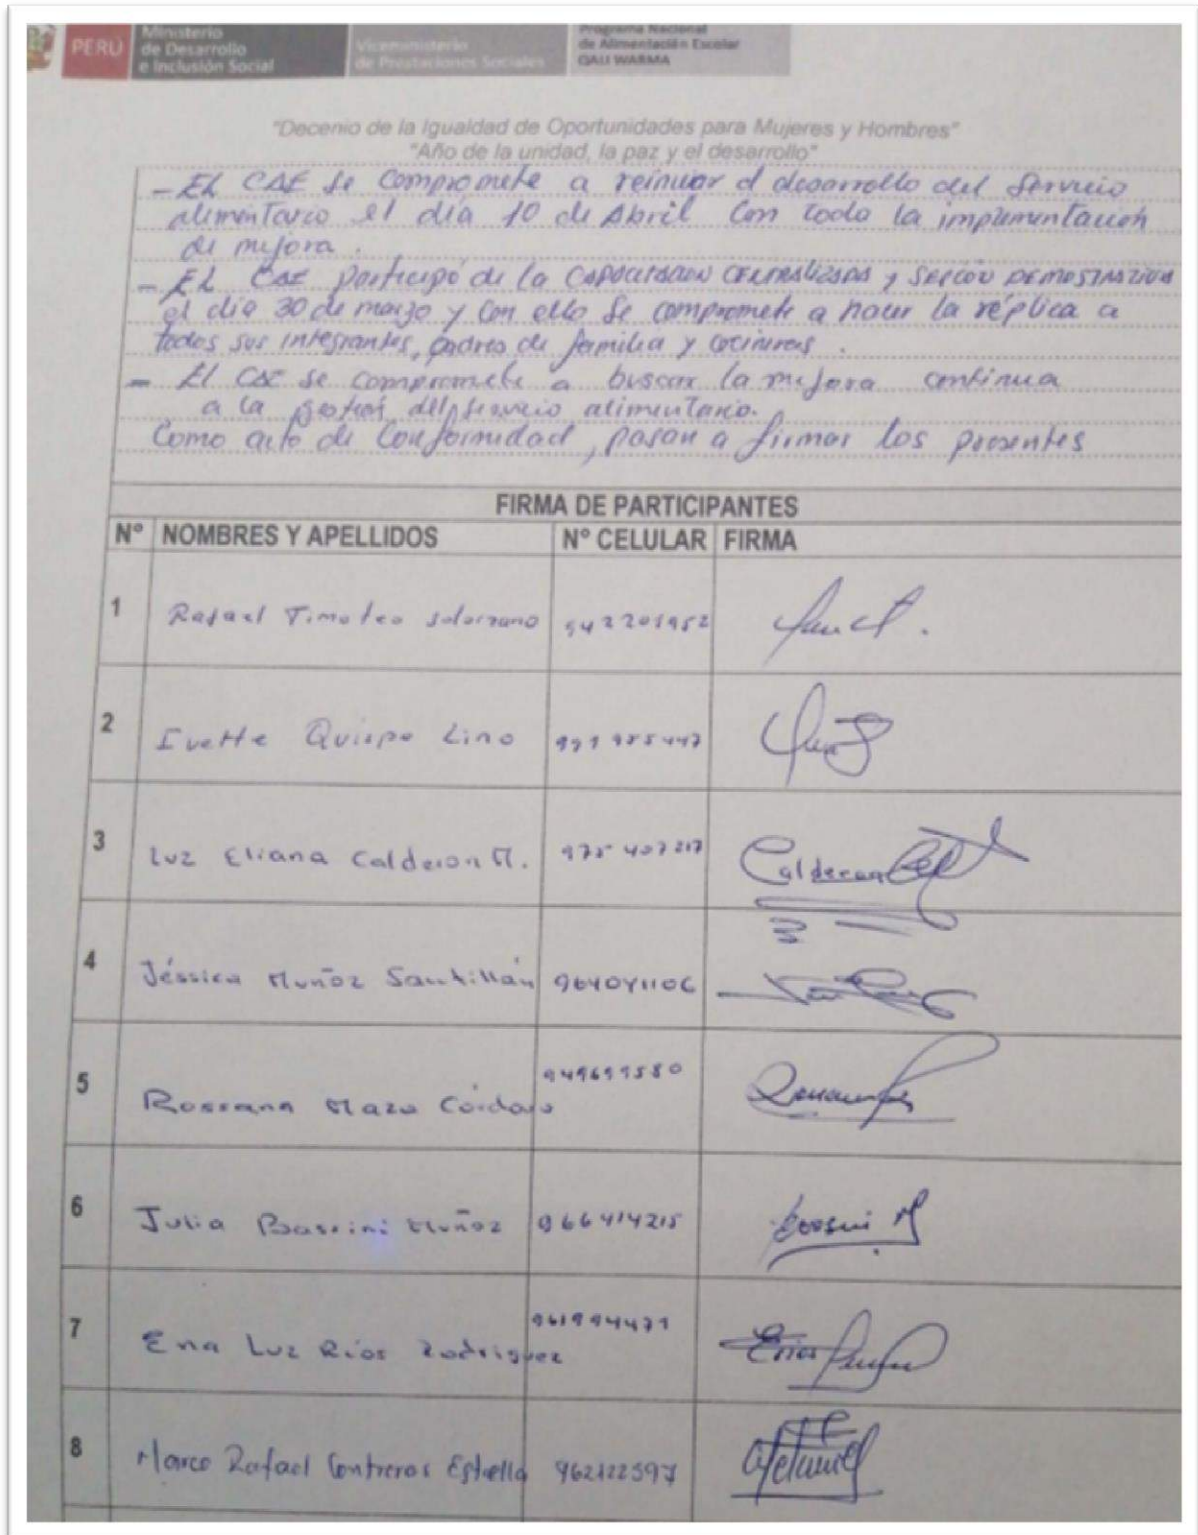 PERÚ
Ministerio
de Desarrollo
e Inclusión Social
Viceministerio
de Prestaciones Sociales
Programa Nacional
de Alimentación Escolar
QALI WARMA
"Decenio de la Igualdad de Oportunidades para Mujeres y Hombres"
"Año de la unidad, la paz y el desarrollo"
- EL CAE se compromete a reiniciar el desarrollo del servicio
alimentario el día 10 de Abril con todo la implementación
de mejora.
- EL CAE participó de la CAPACITACION CENTRALIZADA y SESIÓN DEMOSTRATIVA
el día 30 de marzo y con ello se compromete a hacer la réplica a
todos sus integrantes, padres de familia y cocineras.
- El CAE se compromete a buscar la mejora continua
a la gestión del servicio alimentario.
Como acto de Conformidad, pasan a firmar los presentes
FIRMA DE PARTICIPANTES
N° NOMBRES Y APELLIDOS N° CELULAR FIRMA
1 Rafael Timoteo Solorzano 942201952
2 Ivette Quispe Lino 991955447
3 Luz Eliana Calderon M. 975 407217 Calderon
4 Jéssica Muñoz Santillán 964041106
5 Rossana Maza Córdova 949699580
6 Julia Bassini Muñoz 966414215
7 Ena Luz Ríos Rodriguez 961994471
8 Marco Rafael Contreras Estrella 962122597